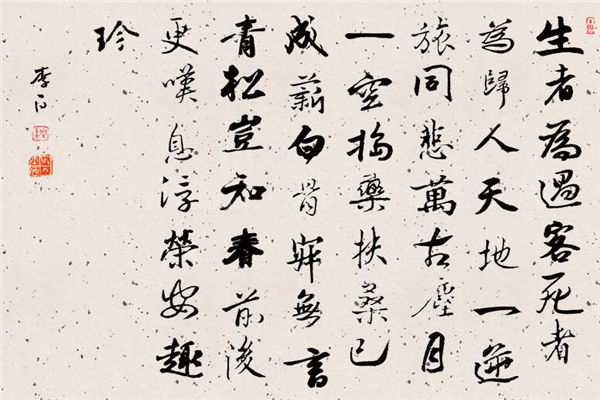 生者為過客死者
為歸人天地一逆
旅同悲萬古塵月
一空搗藥扶桑已
成薪白骨寂無言
青松豈知春前後
更嘆息浮榮安趣
珍
李白